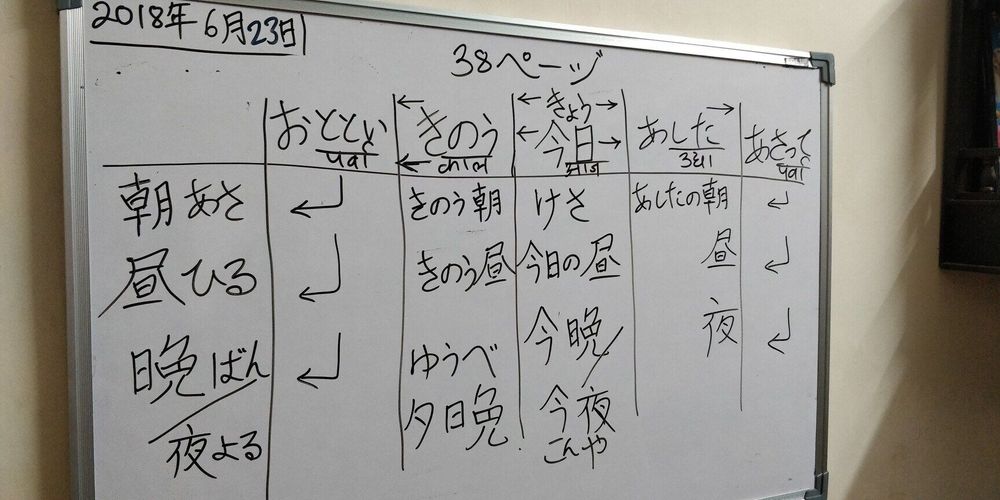 2018年6月23日
38ページ
おととい きのう きょう 今日 あした あさって
काल आज उद्या
朝 あさ きのう朝 けさ あしたの朝
昼 ひる きのう昼 今日の昼 昼
晩 ばん ゆうべ 今晩/ 夜
夜 よる 夕日晩 今夜
こんや